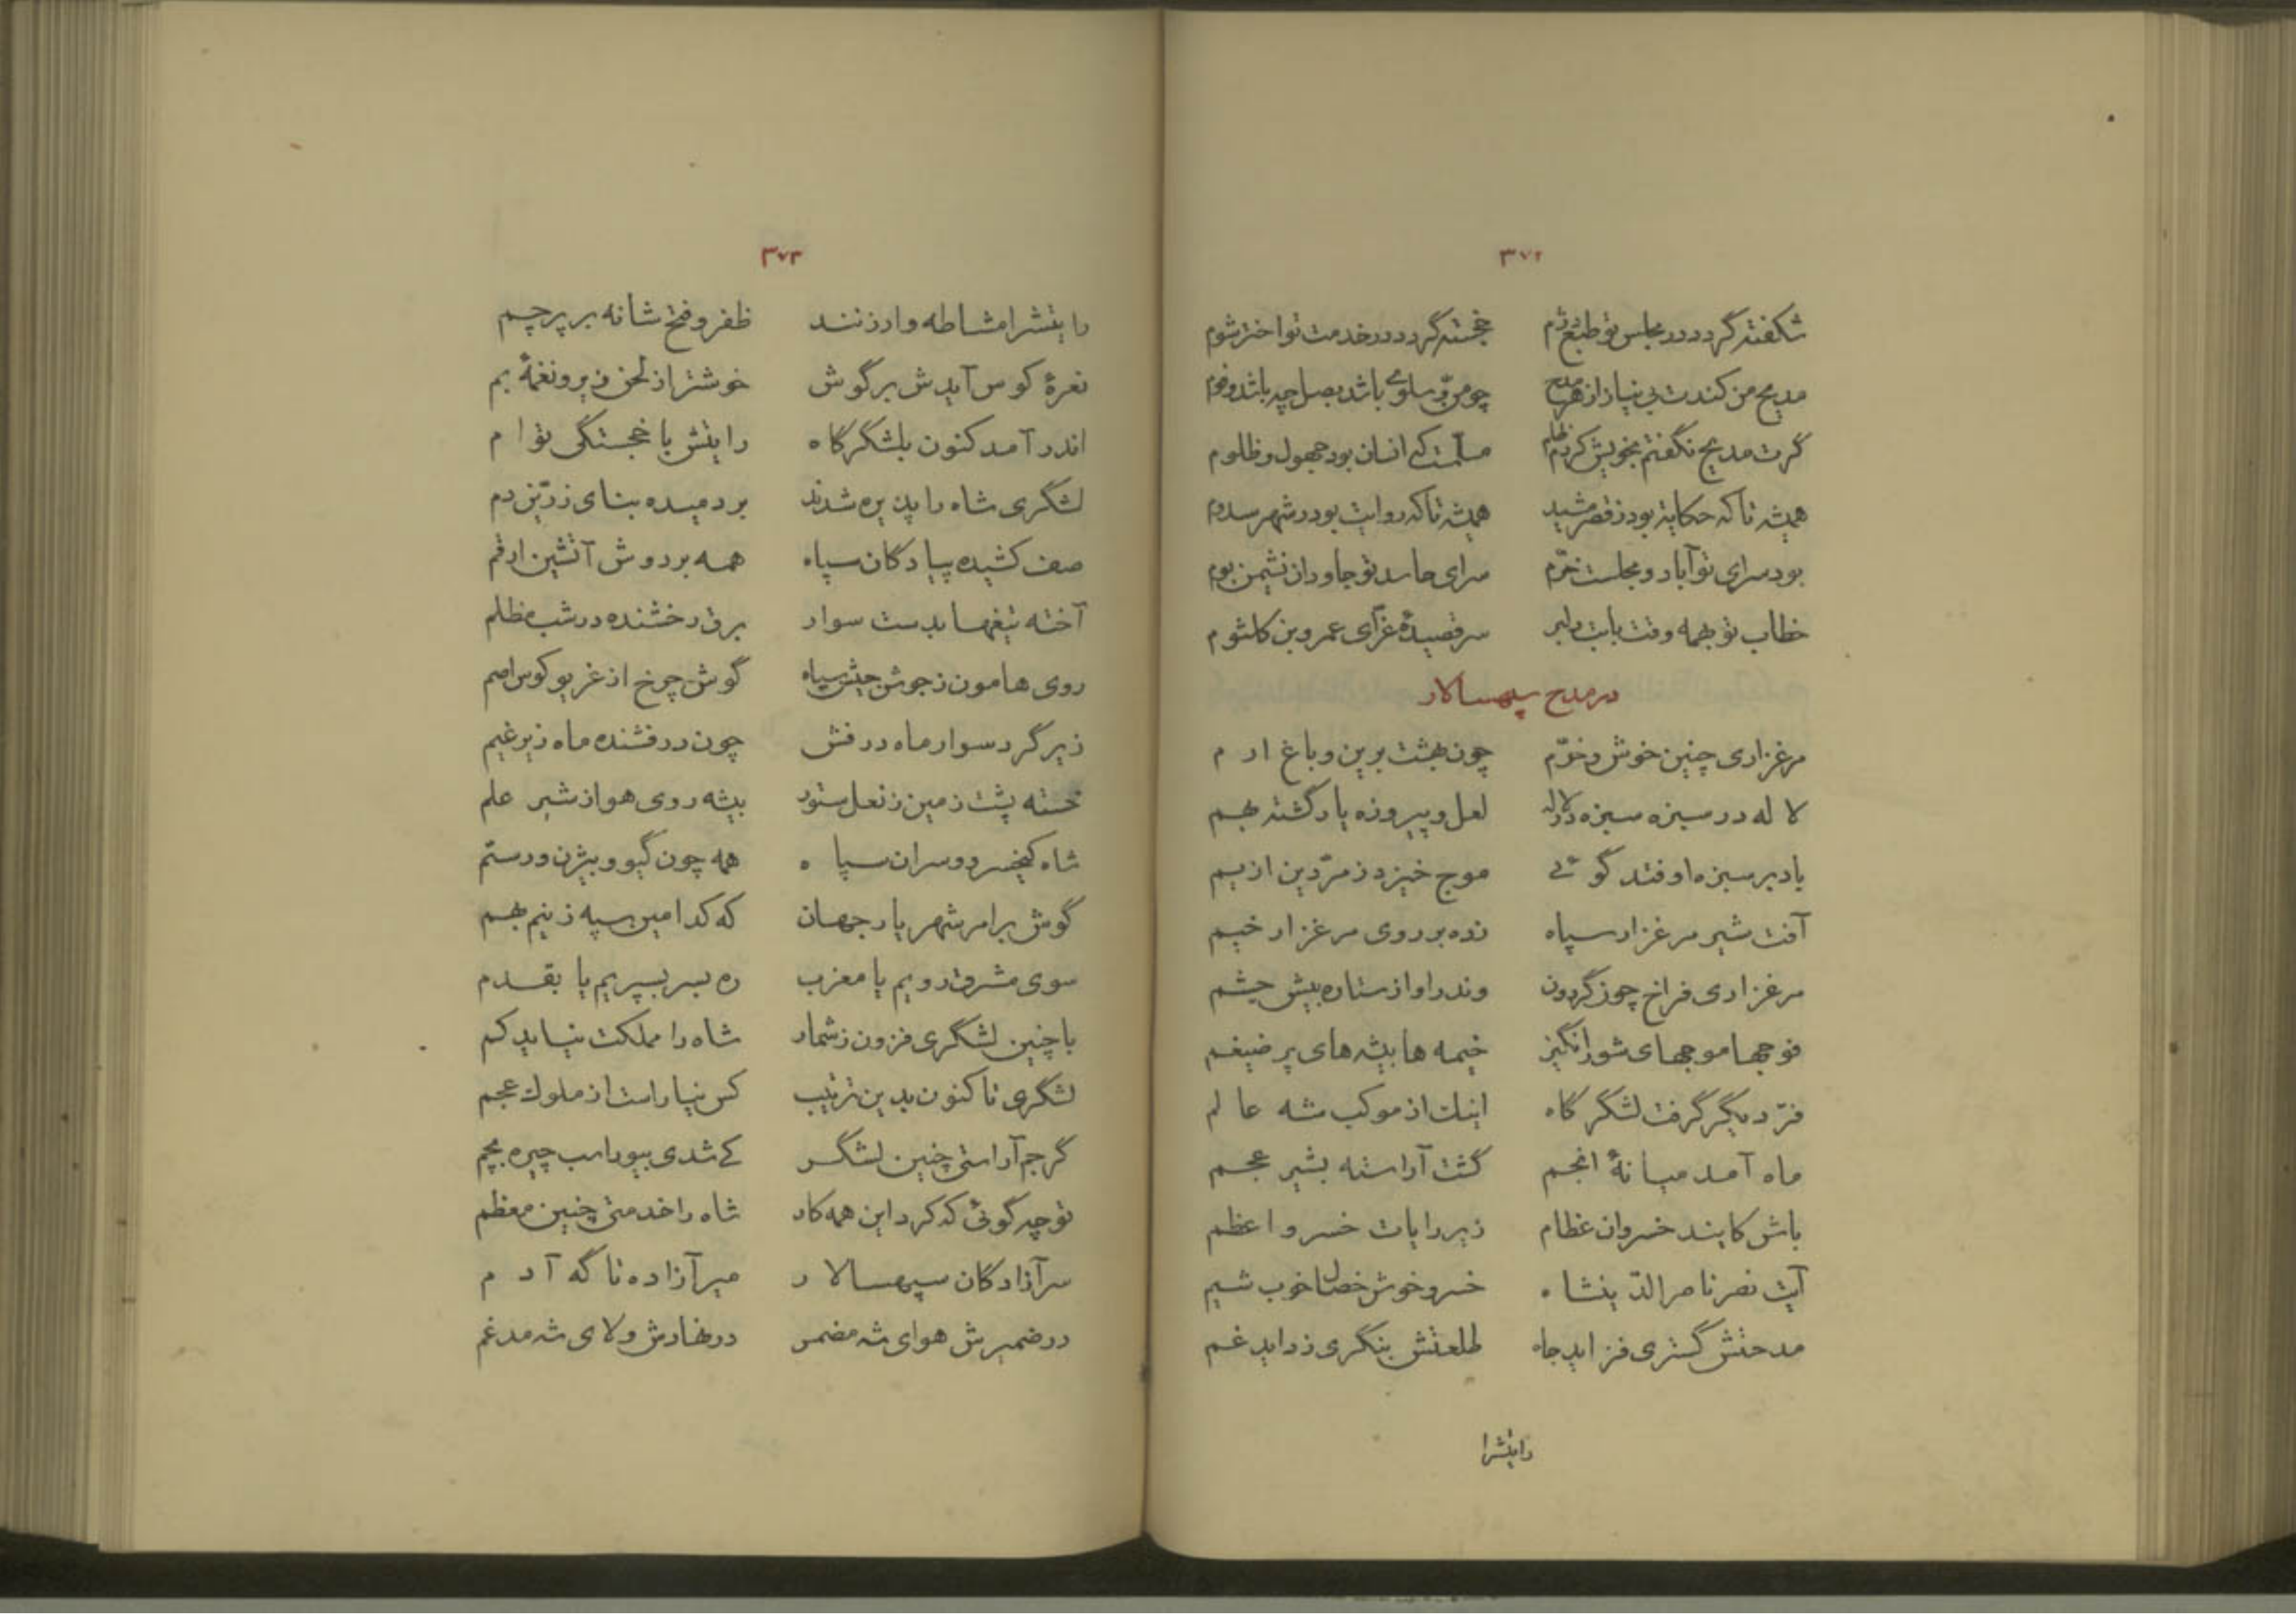 ۳۷۲
شکفته گردد در مجلس تو طبع دژم خجسته گردد در خدمت تو اختر شوم
مدیح من کندت بی نیاز از هر مدح چو من و سلوی باشد بصل چه باشد و فوم
گرت مدیح نگفتم بخویش کردم ظلم مسلمست که انسان بود جهول و ظلوم
همیشه تا که حکایه بود ز قصر مشید همیشه تا که روایت بود در شهر سدوم
بود سرای تو آباد و مجلست خرّم سرای حاسد تو جاودان نشیمن بوم
خطاب تو بهمه وقت بابت دلبر سر قصیدهٔ غرّای عمرو بن کلثوم
در مدح سپهسالار
مرغزاری چنین خوش و خرّم چون بهشت برین و باغ ارم
لاله در سبزه سبزه در لاله لعل و پیروزه یار گشته بهم
باد بر سبزه اوفتد گوئی موج خیزد زمرّدین از یم
آفت شیر مرغزار سپاه زده بر روی مرغزار خیم
مرغزاری فراخ چون گردون وندر او از ستاره بیش حشم
فوجها موجهای شورانگیز خیمه ها بیشه های پر ضیغم
فرّ دیگر گرفت لشگرگاه اینك از موکب شه عالم
ماه آمد میانهٔ انجم گشت آراسته بشیر عجم
باش کایند خسروان عظام زیر رایات خسرو اعظم
آیت نصر ناصرالدّینشاه خسرو خوش خصال خوب شیم
مدحتش گستری فزاید جاه طلعتش بنگری زداید غم
رایتشرا
۳۷۳
رایتشرا مشاطه وار زنند ظفر و فتح شانه بر پرچم
نعرهٔ کوس آیدش بر گوش خوشتر از لحن زیر و نغمهٔ بم
اندر آمد کنون بلشگرگاه رایتش با خجستگی توام
لشگری شاه را پذیره شدند بر دمیده بنای زرّین دم
صف کشیده پیادکان سپاه همه بر دوش آتشین ارقم
آخته تیغها بدست سوار برق رخشنده در شب مظلم
روی هامون ز جوش جیش سیاه گوش چرخ از غریو کوس اصم
زیر گرد سوار ماه درفش چون درفشنده ماه زیر غیم
خسته پشت زمین ز نعل ستور بیشه روی هوا ز شیر علم
شاه کیخسرو و سران سپاه همه چون گیو و بیژن و رستم
گوش بر امر شهریار جهان که کدامین سپه زنیم بهم
سوی مشرق رویم یا مغرب ره بسر بسپریم یا بقدم
با چنین لشگری فزون ز شمار شاه را مملکت نیاید کم
لشگری تا کنون بدین ترتیب کس نیاراست از ملوك عجم
گر جم آراستی چنین لشگر کے شدی بیوراسب چیره بجم
تو چه گوئی که کرد این همه کار شاه را خدمتی چنین معظم
سر آزادکان سپهسالار میر آزاده تا گه آدم
در ضمیرش هوای شه مضمر در نهادش ولای شه مدغم